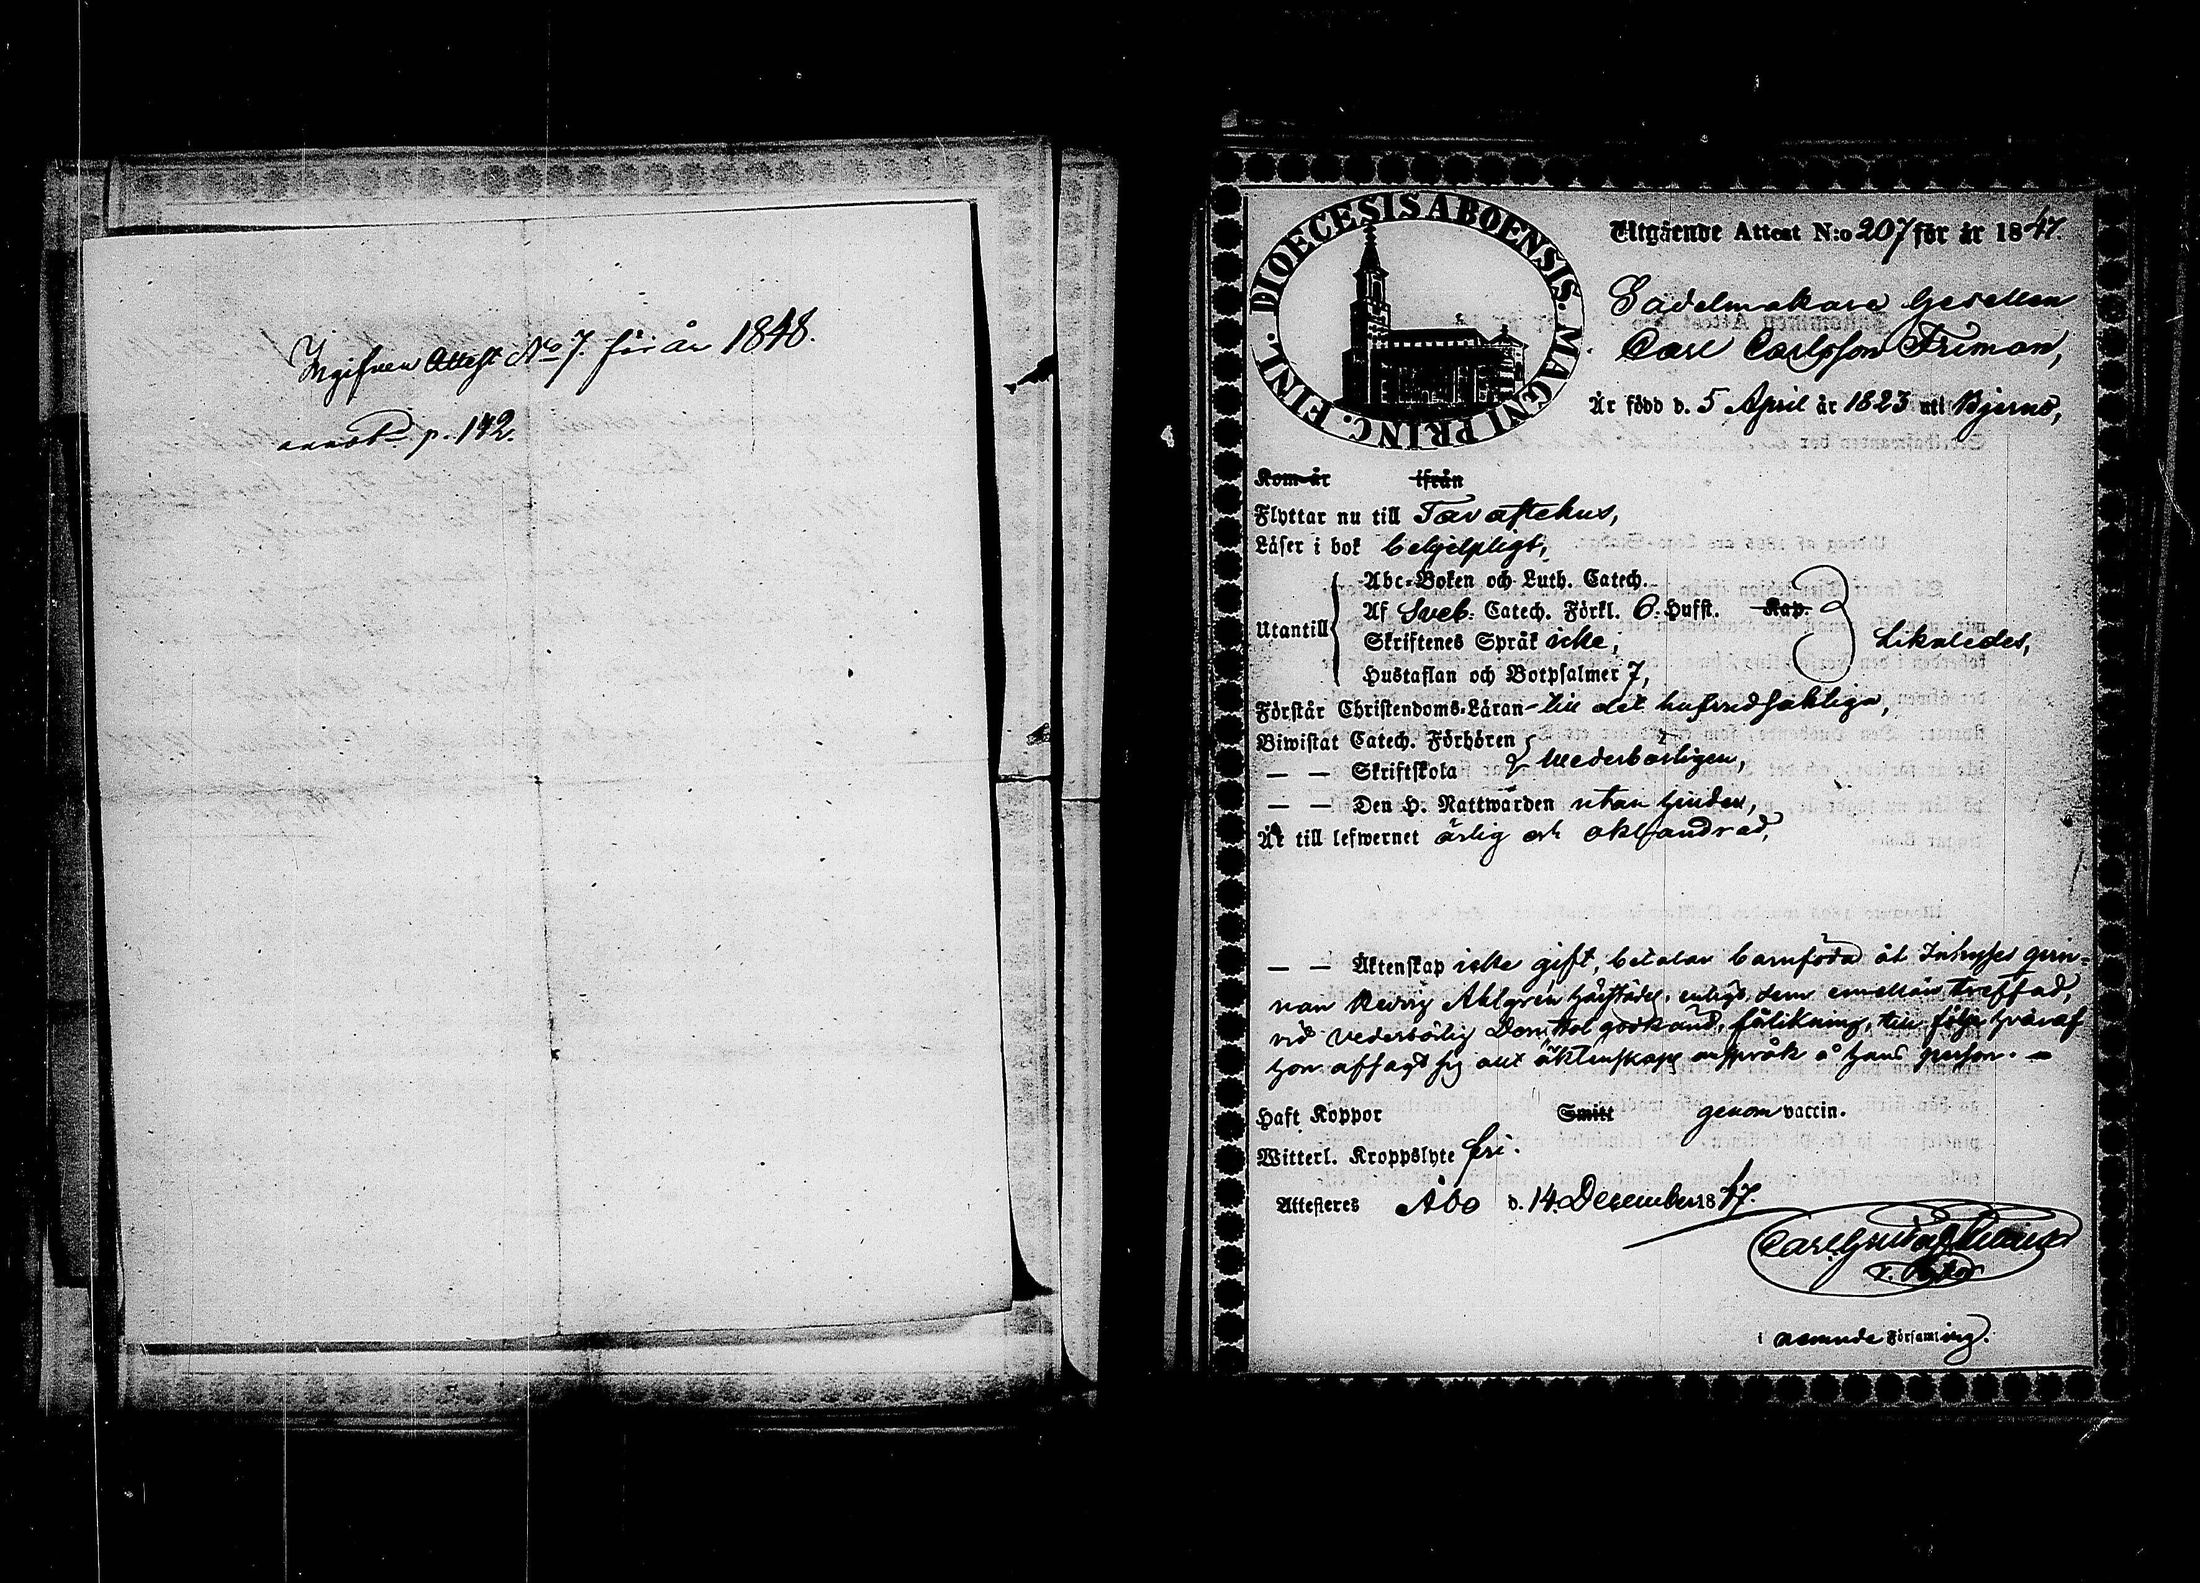 Ingifven Attest No 7. för år 1848.
annot. p. 142.
DIOECESIS ABOENSIS. MAGNI PRINC. FINL.
Utgående Attest N:o 207 för år 1847.
Sadelmakare Gesellen
Carl Carlsson Friman,
Är född d. 5 April år 1823 uti Bjerno,
Kom år ifrån
Flyttar nu till Tavastehus,
Läser i bok behjelpligt,
Abc-Boken och Luth. Catech.
Af Sveb. Catech. Förkl. 6. Hufst. Kap.
Utantill
Skriftenes Språk icke,
Likaledes,
Hustaflan och Botpsalmer 7,
Förstår Christendoms-Läran till det hufvudsakliga,
Biwistat Catech. Förhören
— — Skriftskola
vederborligen,
— — Den H. Nattwarden utan hinder,
Är till lefwernet ärlig och oklandrad,
— — Äktenskap icke gift, betalar barnföda åt Inhyses qvin-
nan Hedvig Ahlgren härstädes, enligt dem emellan träffad,
vid vederbörlig Domstol godkänd, förlikning, till följe hvaraf
hon afsagt sig allt äktenskaps anspråk å hans person. —
Haft Koppor Smitt genom vaccin.
Witterl. Kroppslyte fri.
Attesteres Åbo d. 14. December 1847.
Carl Gustaf
i nemnde Församling.